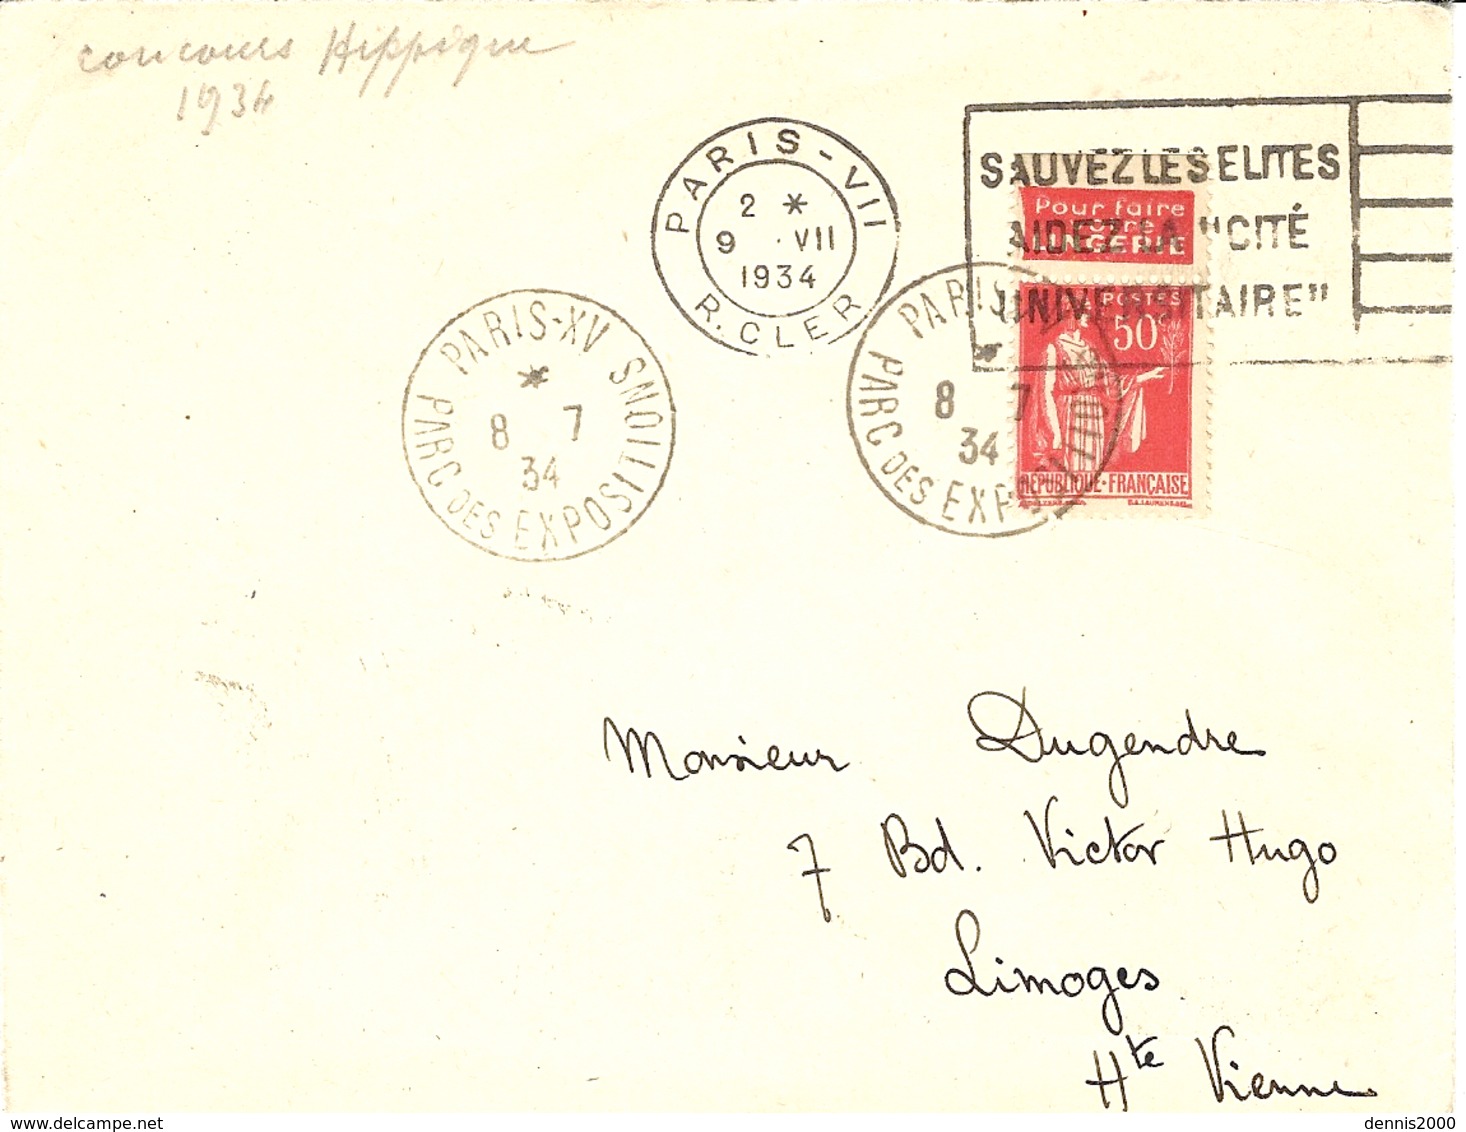 concours Hippique
1934
PARIS-VII
2 *
9 VII
1934
R. CLER
SAUVEZ LES ELITES
AIDEZ LA "CITÉ
UNIVERSITAIRE"
Pour faire
votre
LINGERIE
POSTES
50c
RÉPUBLIQUE·FRANÇAISE
PARIS-XV
*
8 7
34
PARC DES EXPOSITIONS
PARIS
*
8 7
34
PARC DES EXPOSITIONS
Monsieur Dugendre
7 Bd. Victor Hugo
Limoges
Hte Vienne
delcampe.net
dennis2000